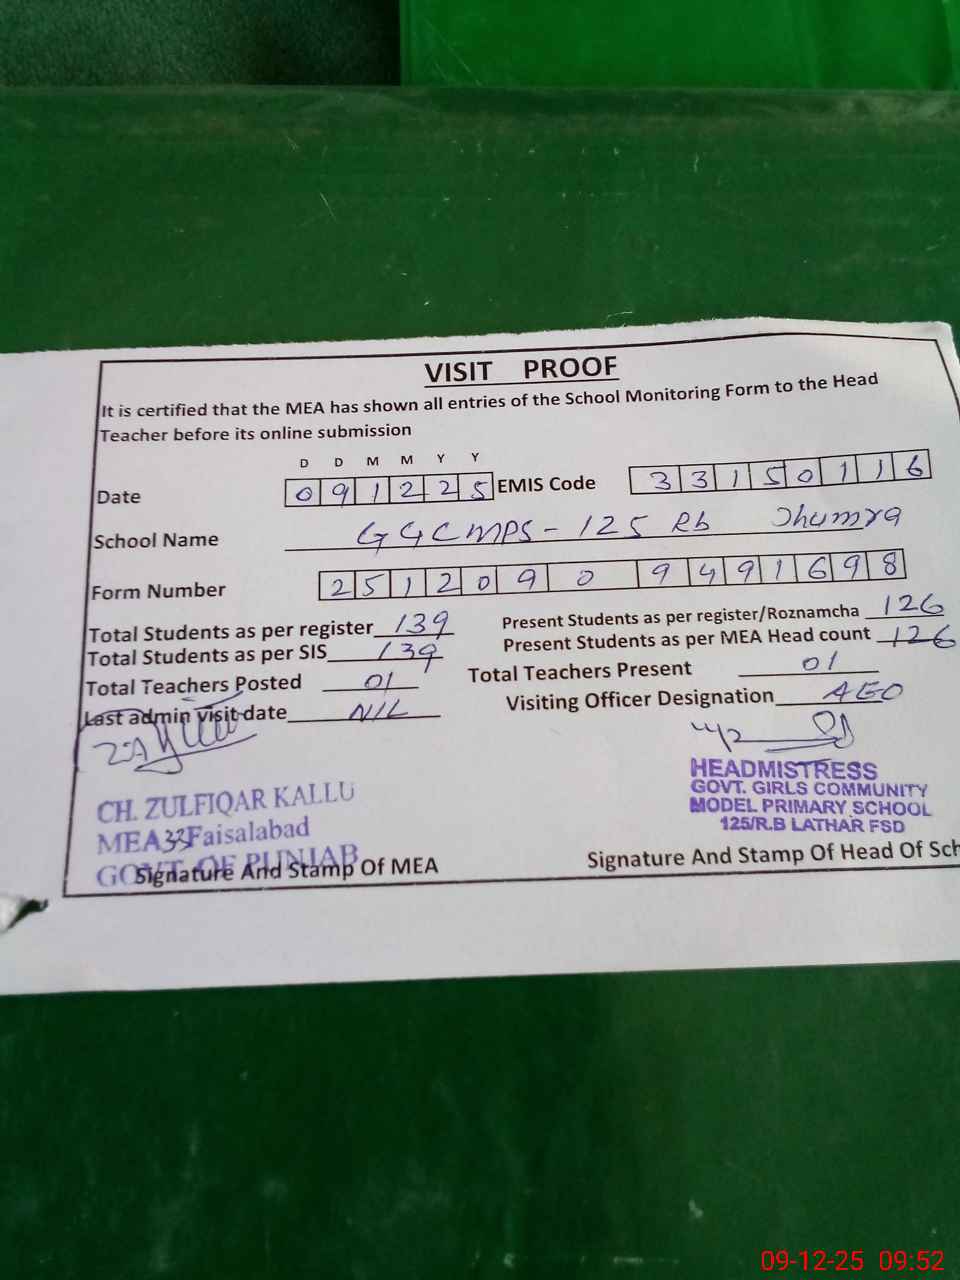 VISIT PROOF
It is certified that the MEA has shown all entries of the School Monitoring Form to the Head
Teacher before its online submission
D D M M Y Y
Date 091225 EMIS Code 33150116
School Name GGCMPS-125 Rb Jhumra
Form Number 25120909491698
Total Students as per register 139 Present Students as per register/Roznamcha 126
Total Students as per SIS 139 Present Students as per MEA Head count 126
Total Teachers Posted 01 Total Teachers Present 01
Last admin visit date NIL Visiting Officer Designation AEO
CH. ZULFIQAR KALLU
MEA 33 Faisalabad
GOVT. OF PUNJAB
HEADMISTRESS
GOVT. GIRLS COMMUNITY
MODEL PRIMARY SCHOOL
125/R.B LATHAR FSD
Signature And Stamp Of MEA Signature And Stamp Of Head Of Sch
09-12-25 09:52